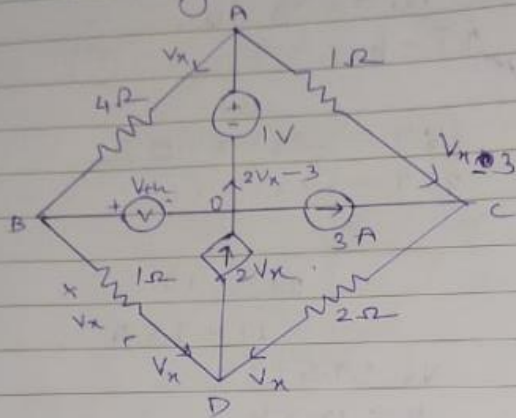 A
Vx
1Ω
4Ω
+
-
1V
Vx - 3
2Vx-3
Vth
+ V -
B
0
C
3A
1Ω
2Vx
x
Vx
2Ω
r
Vx
Vx
D